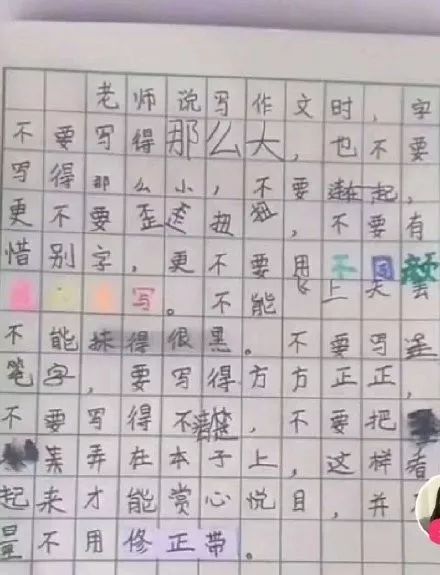 老师说写作文时,字
不要写得那么大,也不要
写得那么小,不要在起,
更不要歪扭扭,不要有
惜别字,更不要用不同颜
写。不能飞上天
不能抹得很黑。不要写连
笔字,要写得方方正正,
不要写得不清楚,不要把
弄在本子上,这样看
起来才能赏心悦目,并
量不用修正带。